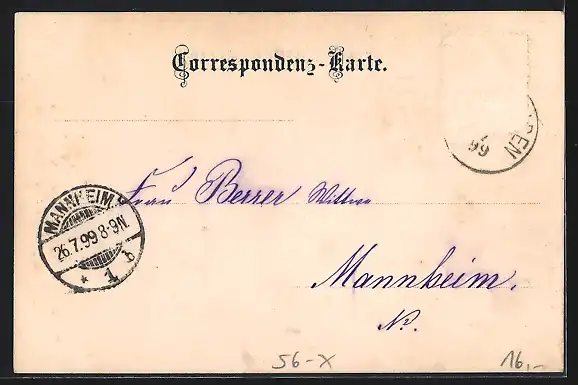 Correspondenz-Karte.
REN
99
Frau Berrer Wittwe
MANNHEIM
26.7.99.8-9N.
1
Mannheim.
No.
56-X
16,-